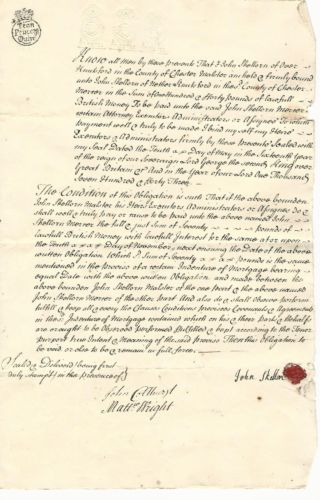 Know all men by these presents That I John Skellorn of Over
Knutsford in the County of Chester Malster am held & firmly bound
unto John Skellorn of Nether Knutsford in the sd County of Chester
Mercer in the Sum of One hundred & fforty pounds of lawfull
British Money To be paid unto the said John Skellorn Mercer
certain Attorney Executors Administrators or Assignes To which
payment well & truly to be made I bind my self my Heirs
Executors & Administrators firmly by these presents Sealed with
my Seal Dated the Tenth day of May in the Sixteenth Year
of the reign of our Sovereign Lord George the Second King over
Great Britain &c And in the Year of our Lord One Thousand
Seven Hundred & forty Three
The Condition of this Obligation is such That if the above bounden
John Skellorn Malster his Heirs Executors Administrators or Assignes do &
shall well & truly pay or cause to be paid unto the above named John
Skellorn Mercer the full & just Sum of Seventy pounds of
lawfull British Money with lawfull Interest for the same at or upon
the Tenth day of November next ensuing the Date of the above
written Obligation Which sd Sum of Seventy pounds is the same
mentioned in the proviso of a certain Indenture of Mortgage bearing
equal Date with the above written Obligation and made between the
above bounden John Skellorn Malster of the one part & the above named
John Skellorn Mercer of the other part And also do & shall observe perform
fulfill & keep all & every the Clauses Conditions provisoes Covenants & Agreements
in the sd Indenture of Mortgage contained which on his & their parts & behalfs
are or ought to be Observed performed fulfilled & kept according to the Tenor
purport true Intent & Meaning of the said proviso Then this Obligation to
be void or else to be & remain in full force
Sealed & Delivered being first
duly Stampt in the presence of
John Skellorn
Mattw Wright